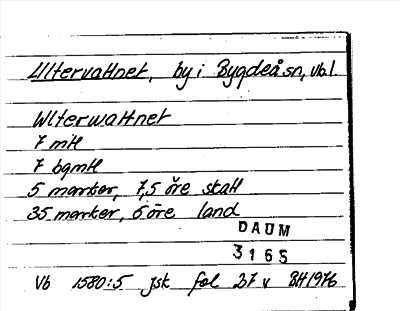 Ultervattnet, by i Bygdeå sn, vbl.
Wlterwattnet
7 mtl
7 bgmtl
5 marker, 7,5 öre skatt
35 marker, 6 öre land
DAUM
3165
Vb 1580:5 jsk fol 27 v BH 1976